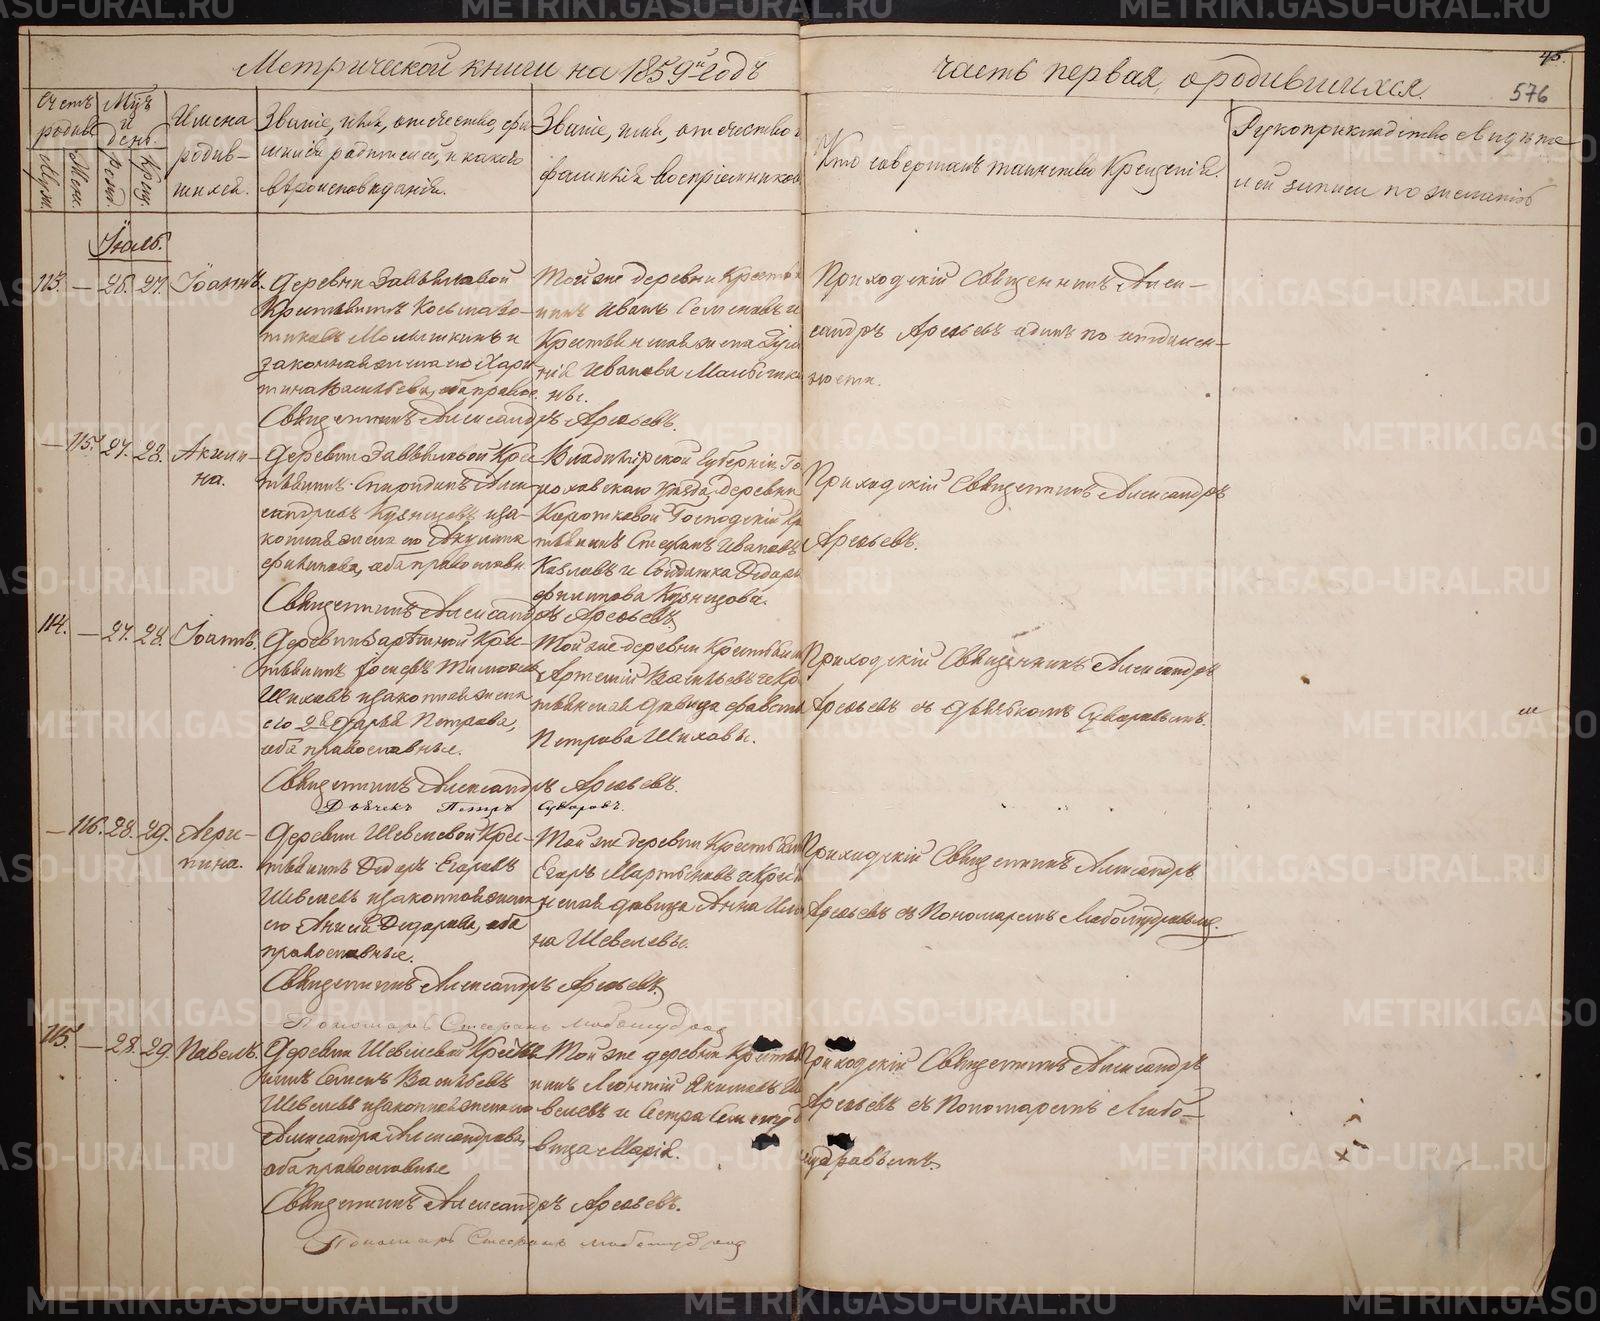 Метрической книги на 1859й годъ
часть первая, о родившихся.
45.
576
Счетъ родив
Муж.
Жен.
М҃ць и день.
Рожд.
Крещ.
Имена родив-
шихся.
Званіе, имя, отчество, фа-
милія родителей, и какого
вѣроисповѣданія.
Званіе, имя, отчество и
фамилія воспріемниковъ
Кто совершалъ таинство Крещенія.
Рукоприкладство свидѣте
лей записи по желанію
Іюль.
113. — 26. 27. Іоаннъ.
Деревни
Крестьянинъ Косьма
и
законная жена его Хари-
тина Васильева, оба правос.
Священникъ Александръ Арефьевъ.
Той же деревни Кресть
нинъ Иванъ Семеновъ и
Крестьянская жена
нія Иванова
ны.
Приходскій Священникъ Алек-
сандръ Арефьевъ одинъ по отдален-
ности.
— 115. 27. 28. Акили-
на.
Деревни Крес
тьянинъ Спиридонъ Алек-
сандровъ Кузнецовъ и за-
конная жена его Акулина
оба православн.
Священникъ Александръ Арефьевъ.
Владимірской Губерніи Го
роховскаго уѣзда, деревни
Коротковой Господскій Кр
тьянинъ Степанъ Ивановъ
Козловъ и Солдатка Ѳедора
Филипова Кузнецова.
Приходскій Священникъ Александръ
Арефьевъ.
114. — 27. 28. Іоаннъ.
Деревни Зарѣчной Крес-
тьянинъ
Шиховъ и законная жена
его 2я Дарья Петрова,
оба православные.
Священникъ Александръ Арефьевъ.
Дьячекъ Петръ Суворовъ.
Той же деревни Крестьянин
Артемій Васильевъ и Кр
тьянская дѣвица
Петрова Шиховы.
Приходскій Священникъ Александръ
Арефьевъ съ Дьячкомъ Суворовымъ.
— 116. 28. 29. Агри-
пина.
Деревни Шевелевой Крес-
тьянинъ Ѳедоръ Егоровъ
Шевелевъ и законная жена
его Анисія Ѳедорова, оба
православные.
Священникъ Александръ Арефьевъ.
Пономарь Стефанъ Любомудров
Той же деревни Крестьян
Егоръ Мартыновъ и Крест
нская дѣвица Анна
на Шевелевы.
Приходскій Священникъ Александръ
Арефьевъ съ Пономаремъ Любомудровымъ.
115. — 28. 29. Павелъ.
Деревни Шевелевой Крестья
нинъ Семенъ Васильевъ
Шевелевъ и законная жена его
Александра Александрова,
оба православные
Священникъ Александръ Арефьевъ.
Пономарь Стефанъ Любомудров
Той же деревни Крестья
нинъ Леонтій Якимовъ Ше
велевъ и Сестра Семена дѣ
вица Марія.
Приходскій Священникъ Александръ
Арефьевъ съ Пономаремъ Любо-
мудровымъ.
METRIKI.GASO-URAL.RU